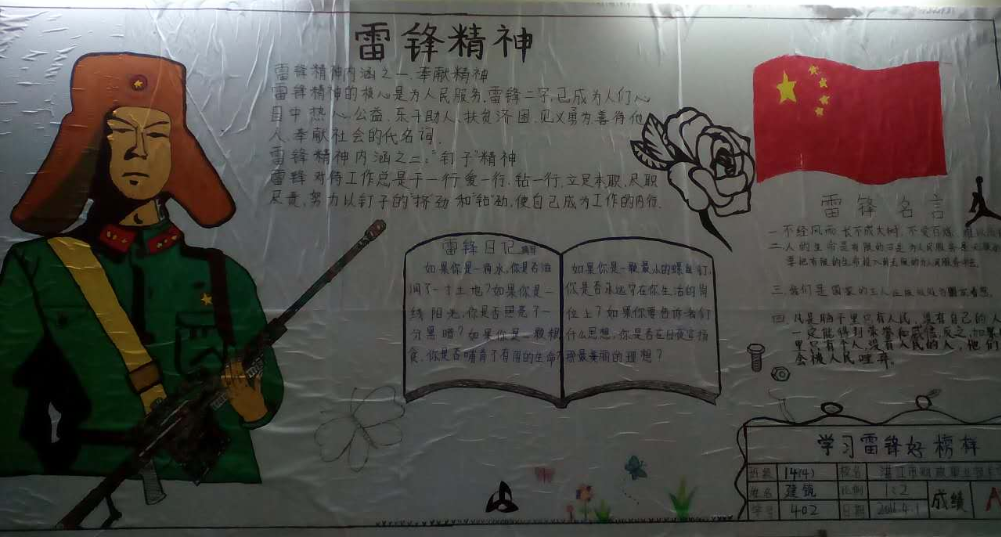 雷锋精神
雷锋精神内涵之一:奉献精神
雷锋精神的核心是为人民服务,雷锋二字,已成为人们心
目中热心公益,乐于助人,扶贫济困,见义勇为,善待他
人,奉献社会的代名词.
雷锋精神内涵之二:"钉子"精神
雷锋对待工作总是干一行,爱一行,钻一行,立足本职,尽职
尽责,努力以钉子的"挤劲"和"钻"劲,使自己成为工作的内行.
雷锋日记
如果你是一滴水,你是否滋
润了一寸土地?如果你是一
线阳光,你是否照亮了一
分黑暗?如果你是一颗粮
食,你是否哺育了有用的生命
如果你是一颗最小的螺丝钉,
你是否永远守在你生活的岗
位上?如果你要告诉我们
什么思想,你是否在日夜宣扬
那最美丽的理想?
雷锋名言
一.不经风雨,长不成大树,不受百炼
二.人的生命是有限的,可是为人民服务是无限
要把有限的生命投入到无限的为人民服务中去
三.我们是国家的主人,应该处处为国家着想
四.凡是脑子里只有人民,没有自己的人
一定能得到荣誉和威信,反之,如果
里只有个人没有人民的人,他们
会被人民唾弃.
学习雷锋好榜样
班级 14(4) 校名
姓名 建锐 比例 1:2 成绩 A
学号 402 日期